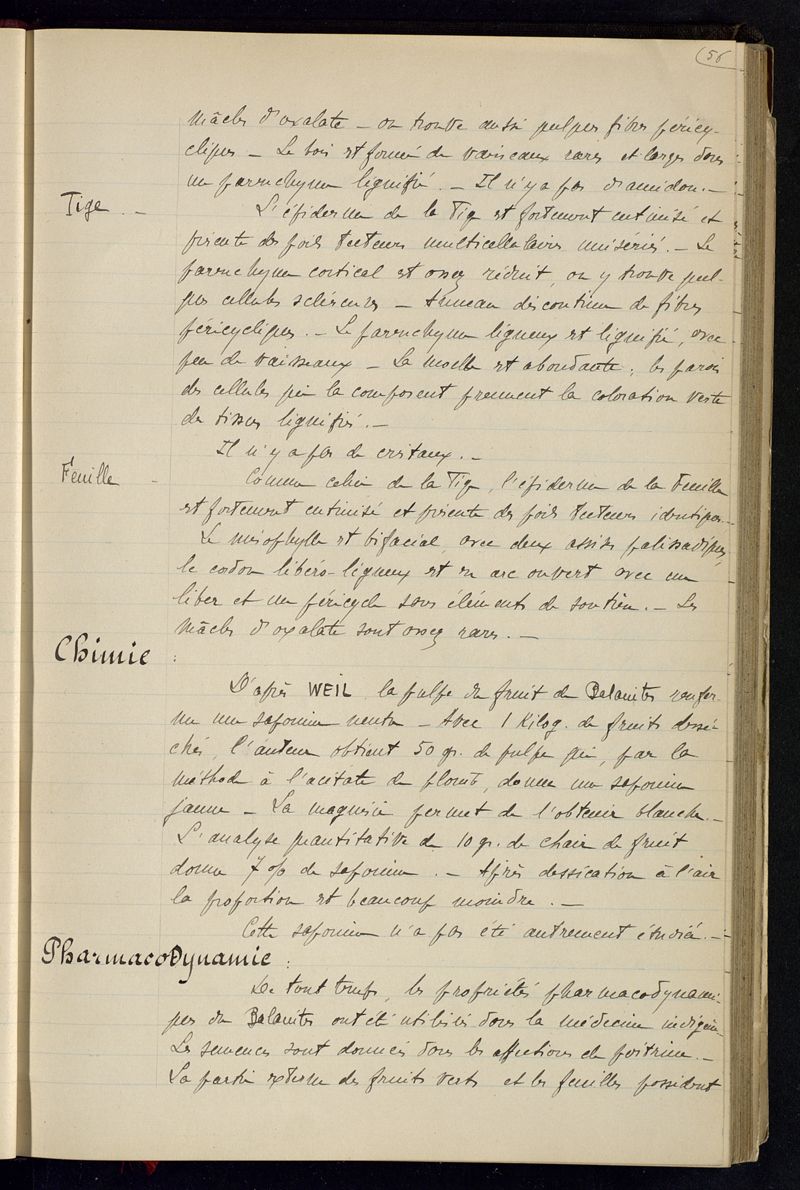 56
mâcles d'oxalate — on trouve aussi quelques fibres péricy-
cliques — Le bois est formé de vaisceaux rares et larges dans
un parenchyme lignifié. — Il n'y a pas d'amidon. —
Tige. —
L'épiderme de la Tige est fortement cutinisé et
présente des poils tecteurs multicellulaires unisériés. — Le
parenchyme cortical est assez réduit, on y trouve quel-
ques cellules scléreuses — Anneau discontinu de fibres
péricycliques. — Le parenchyme ligneux est lignifié, avec
peu de vaisseaux — La moelle est abondante; les parois
des cellules qui la composent prennent la coloration verte
des tissus lignifiés. —
Il n'y a pas de cristaux. —
Feuille —
Comme celui de la Tige, l'épiderme de la Feuille
est fortement cutinisé et présente des poils tecteurs identiques. —
Le mésophylle est bifacial, avec deux assises palissadiques,
le cordon libéro-ligneux est en arc ouvert avec un
liber et un péricycle sans éléments de soutien. — Les
mâcles d'oxalate sont assez rares. —
Chimie :
D'après WEIL, la pulpe du fruit de Balanites renfer-
me une saponine neutre — Avec 1 Kilog. de fruits dessé-
chés, l'auteur obtient 50 gr. de pulpe qui, par la
méthode à l'acétate de plomb, donne une saponine
jaune — La magnésie permet de l'obtenir blanche. —
L'analyse quantitative de 10 gr. de chair de fruit
donne 7 % de saponine. — Après dessication à l'air
la proportion est beaucoup moindre. —
Cette saponine n'a pas été autrement étudiée. —
PharmacoDynamie :
De tout temps, les propriétés pharmacodynami-
ques du Balanites ont été utilisées dans la médecine indigène.
Les semences sont données dans les affections de poitrine. —
La partie externe des fruits verts et les feuilles possèdent